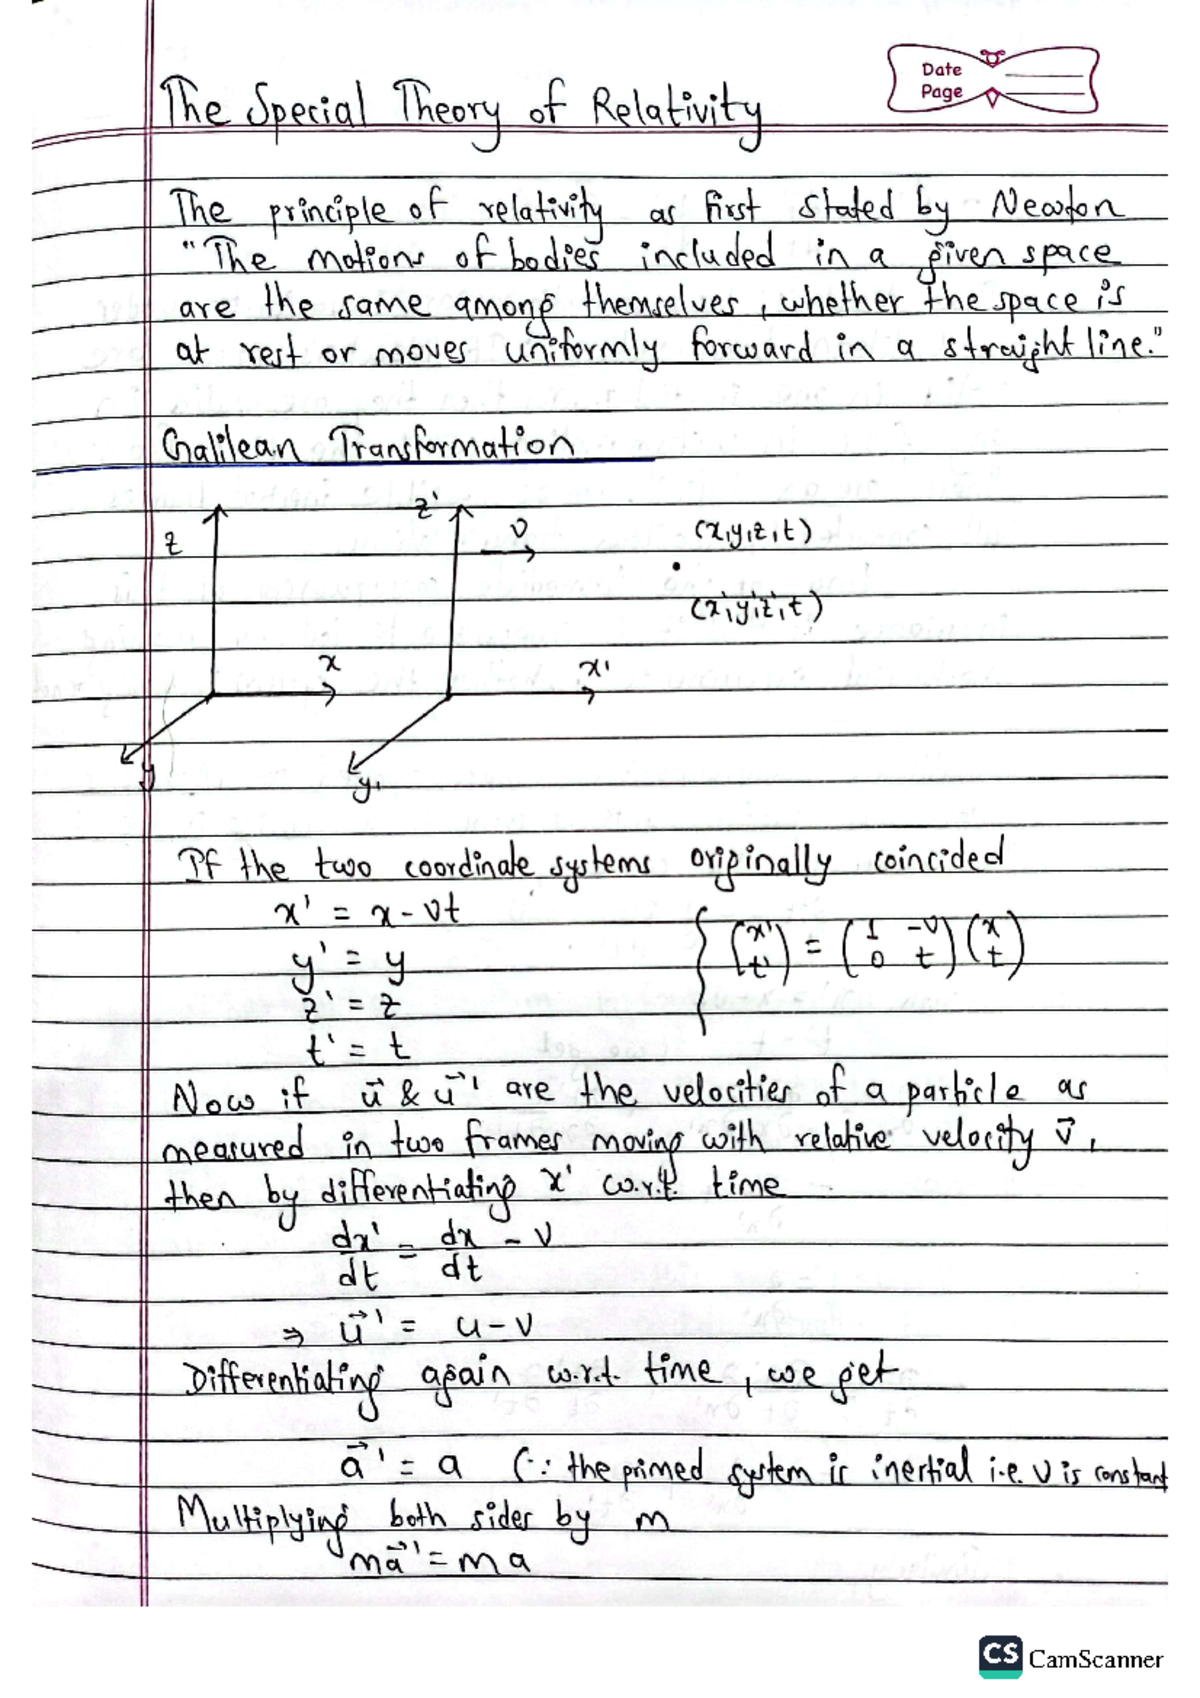 Date
Page
The Special Theory of Relativity
The principle of relativity as first stated by Newton
"The motions of bodies included in a given space
are the same among themselves, whether the space is
at rest or moves uniformly forward in a straight line."
Galilean Transformation
z z' v (x,y,z,t)
(x',y',z',t)
x x'
y y'
If the two coordinate systems originally coincided
x' = x - vt
y' = y
z' = z
t' = t
{ (x' t') = (1 -v 0 t) (x t)
Now if u⃗ & u⃗' are the velocities of a particle as
measured in two frames moving with relative velocity v⃗,
then by differentiating x' w.r.t. time
dx'/dt = dx/dt - v
⇒ u⃗' = u - v
Differentiating again w.r.t. time, we get
a⃗' = a (∵ the primed system is inertial i.e. v is constant
Multiplying both sides by m
ma⃗' = ma
CS CamScanner